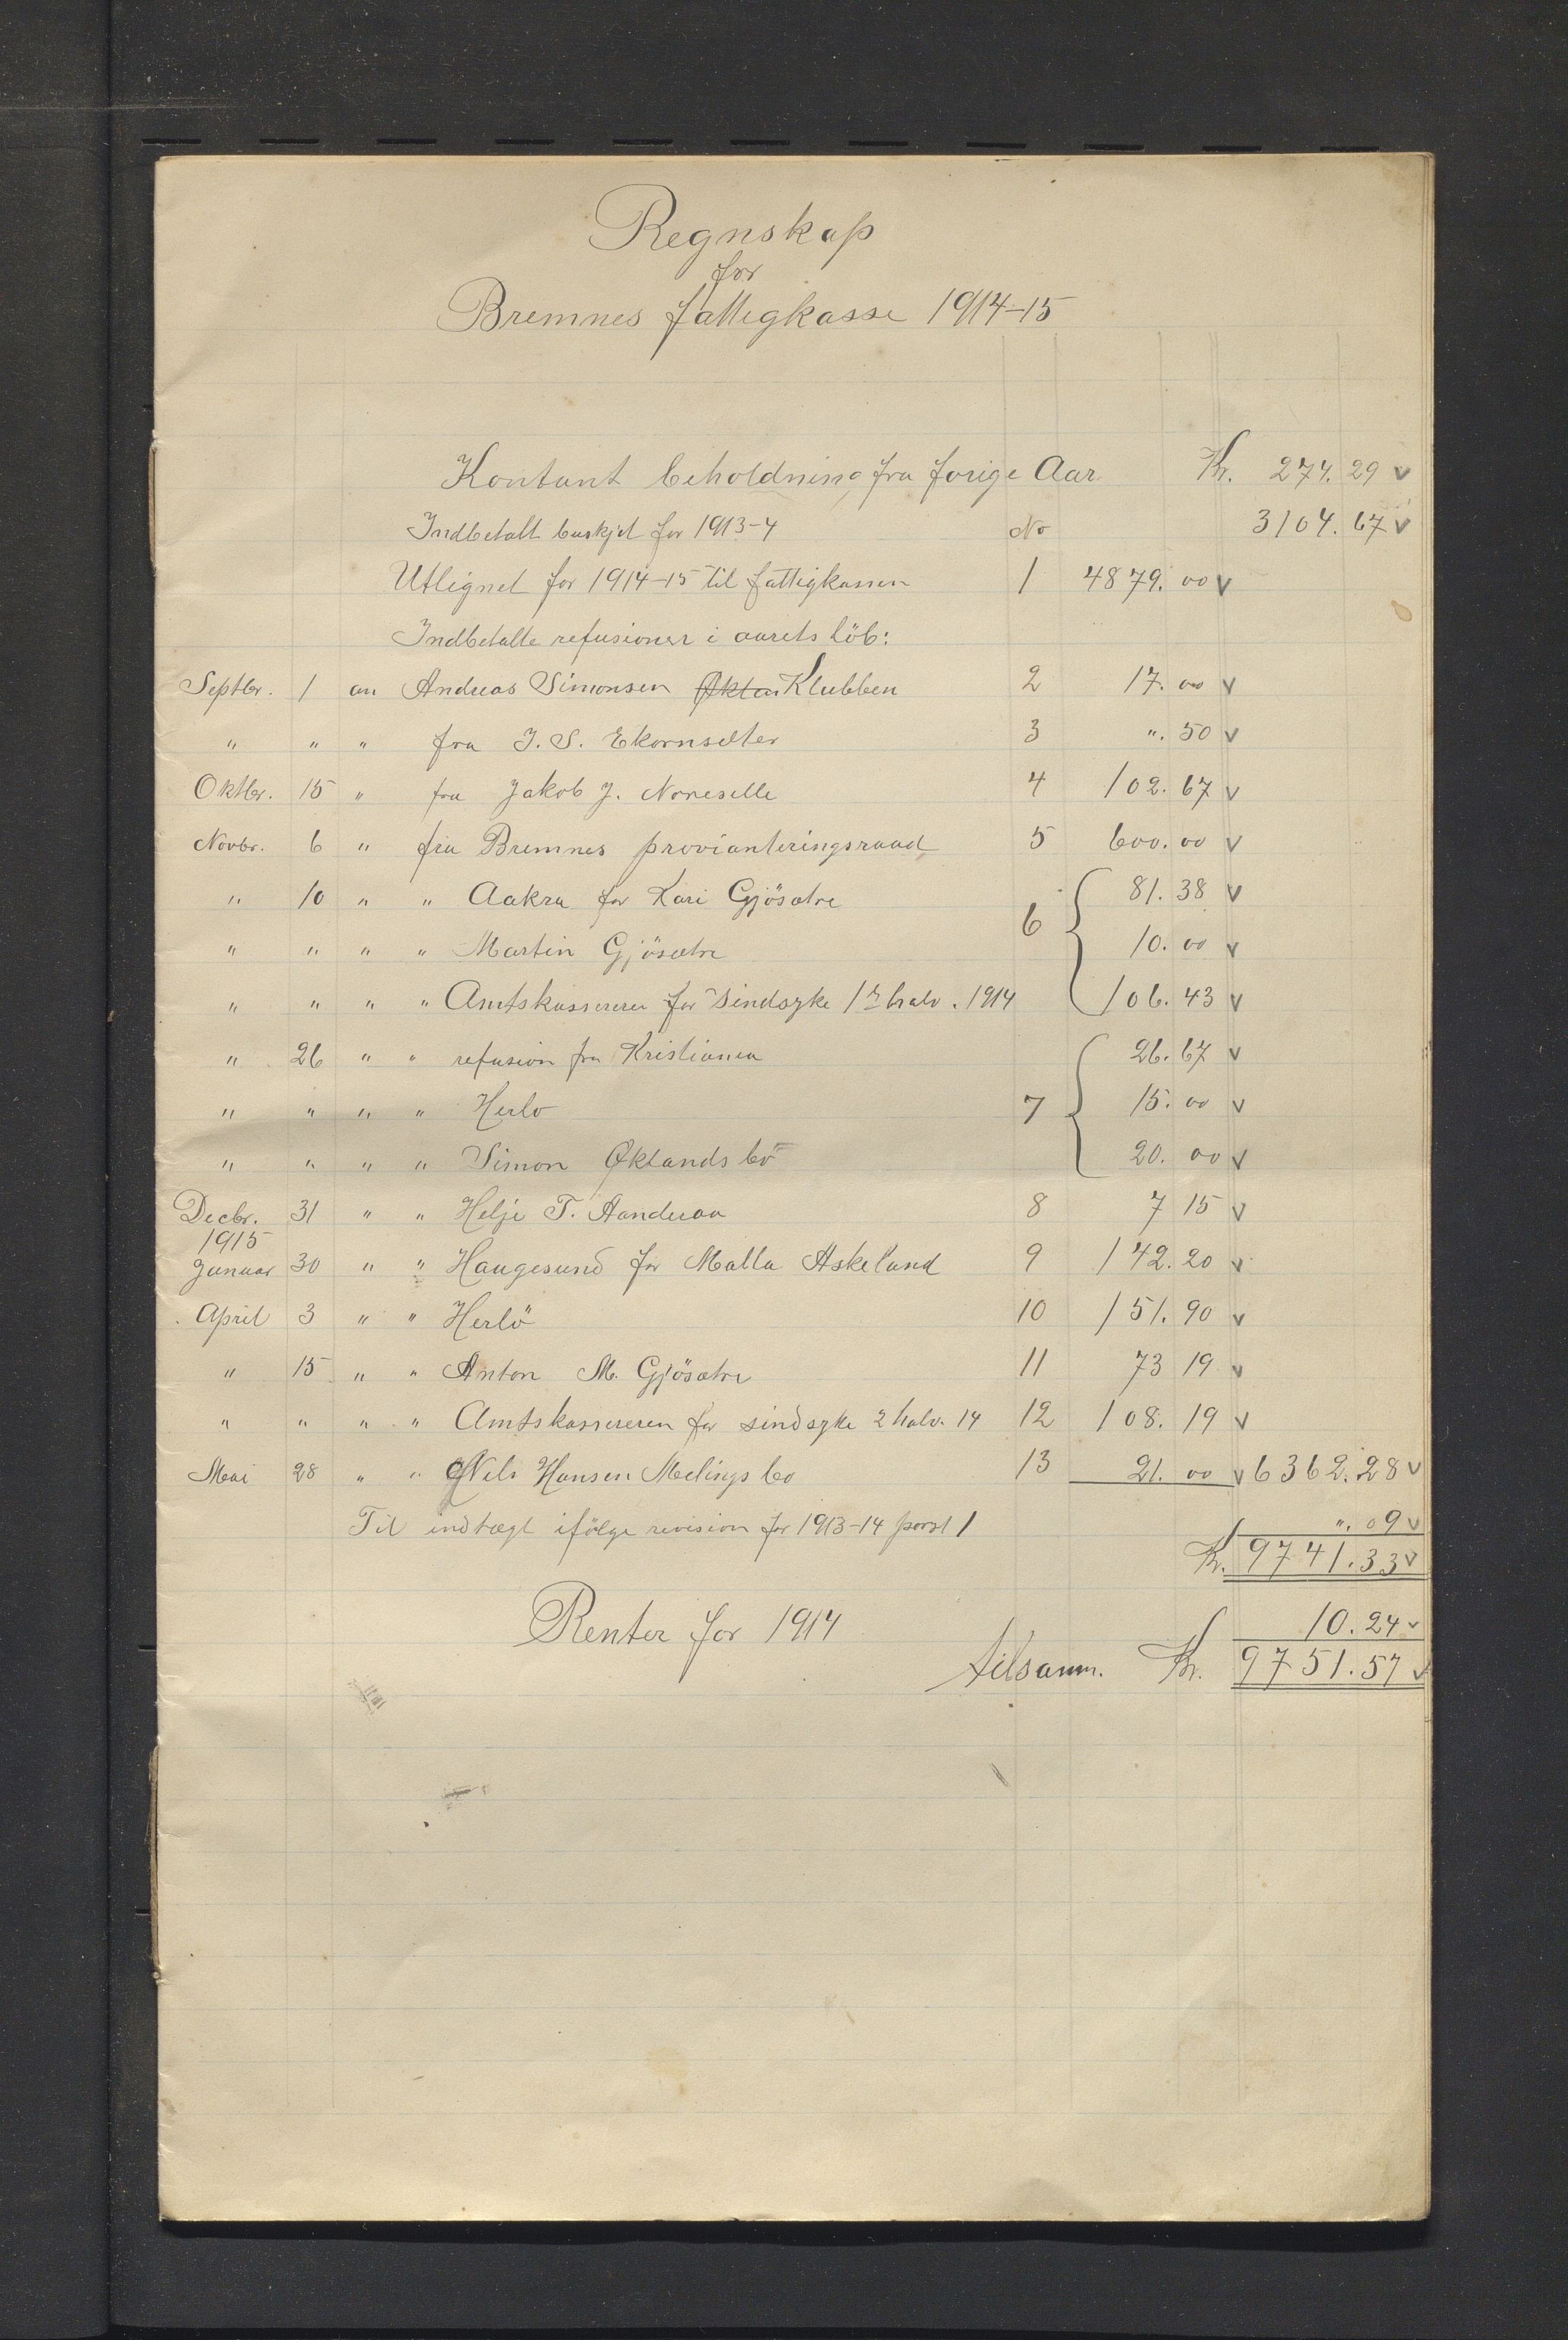 Regnskap
for
Bremnes fattigkasse 1914-15
Kontant beholdning fra forige Aar Kr. 274.29 v
Indbetalt buskjet for 1913-4 No 3104.67 v
Utlignet for 1914-15 til fattigkassen 1 4879.00 v
Indbetalte refusioner i aarets löb:
Septbr. 1 an Andreas Simonsen Øklan Klubben 2 17.00 v
" " " fra J. S. Ekornsæter 3 ".50 v
Oktbr. 15 " fra Jakob J. 4 102.67 v
Novbr. 6 " fra Bremnes provianteringsraad 5 600.00 v
" 10 " " Aakra for Kari Gjösætre 81.38 v
" " " " Martin Gjösætre 6 10.00 v
" " " " Amtskassereren for Sindsyke 1ste halv. 1914 106.43 v
" 26 " " refusion fra Kristiania 26.67 v
" " " " Herlö 7 15.00 v
" " " " Simon Øklands bö 20.00 v
Decbr. 31 " " Helje T. Aanderaa 8 7 15 v
1915
Januar 30 " " Haugesund for Malla Askeland 9 142.20 v
April 3 " " Herlö 10 151.90 v
" 15 " " Anton M. Gjösætre 11 73 19 v
" " " " Amtskassereren for sindsyke 2 halv. 14 12 108.19 v
Mai 28 " " Nils Hansen Melings bo 13 21.00 v 6362.28 v
Til indtægt ifölge revision for 1913-14 post 1 ".09 v
Kr. 9741.33 v
Renter for 1914 10.24 v
tilsamm. Kr. 9751.57 v